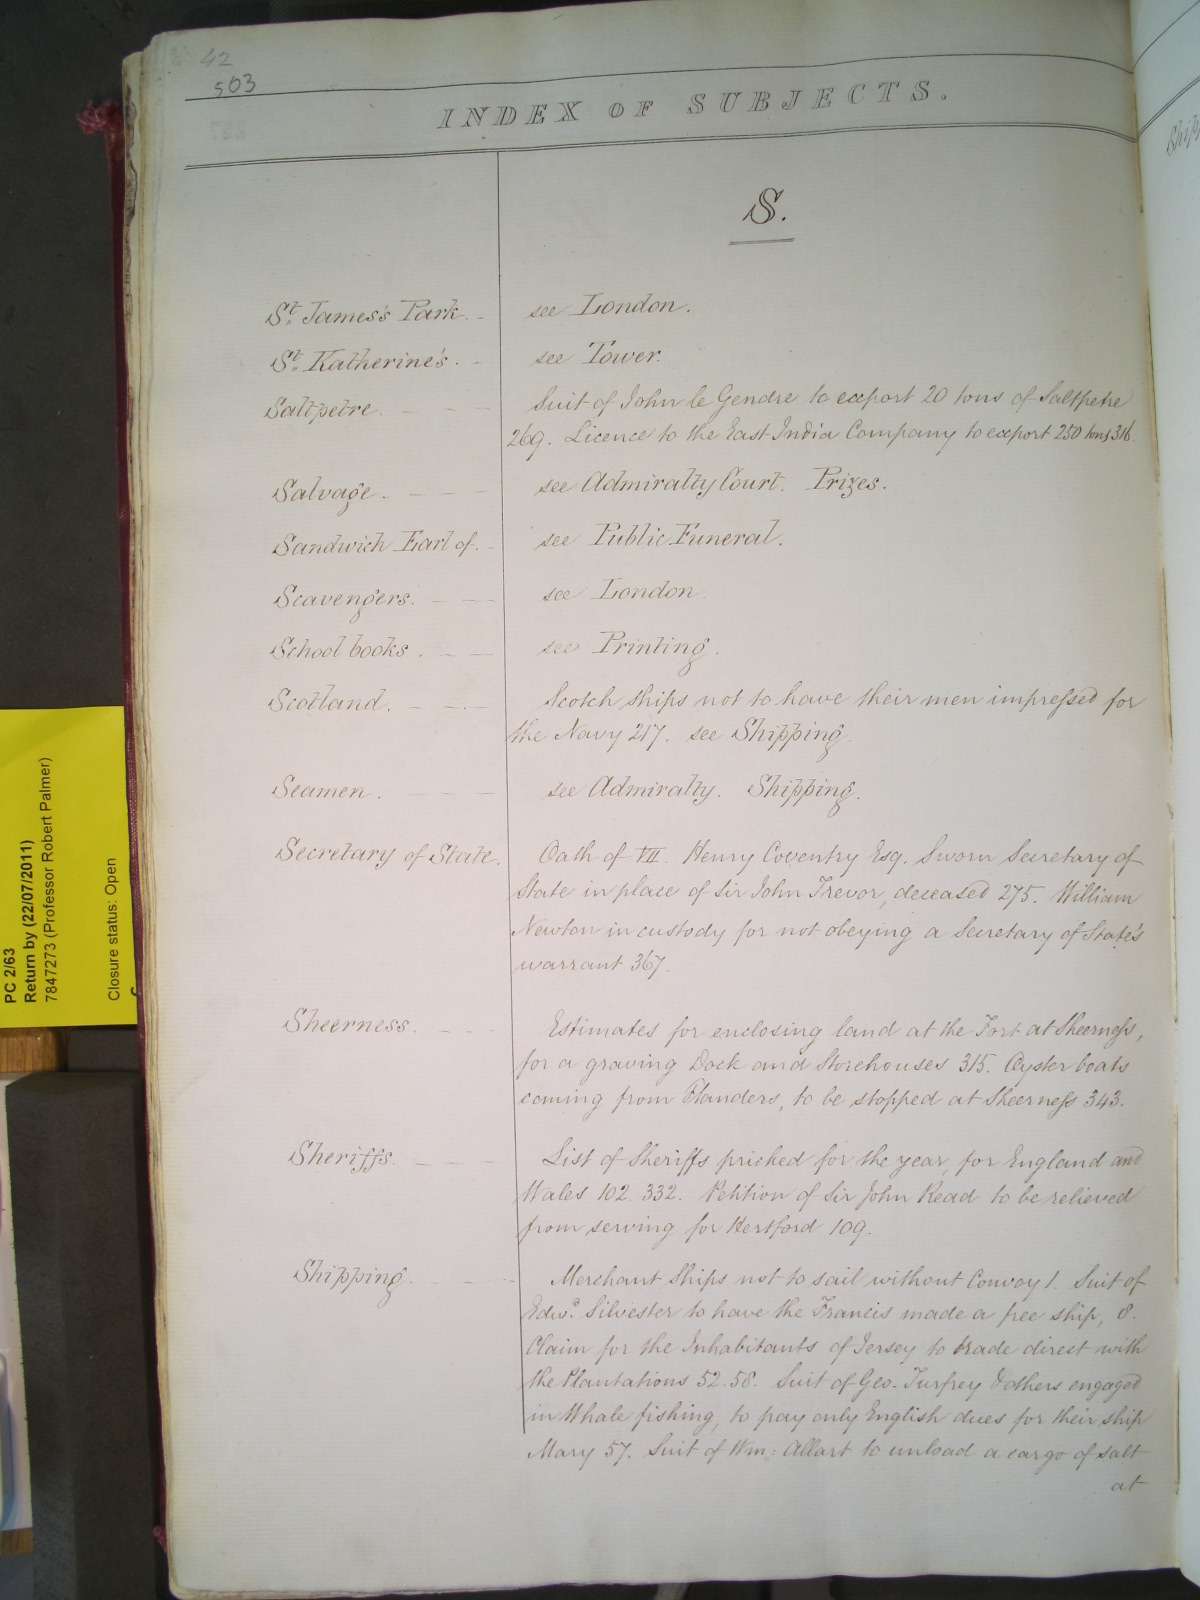 42
503
INDEX OF SUBJECTS.
S.
St. James's Park. - see London.
St. Katherine's. - see Tower.
Saltpetre. - - - Suit of John le Gendre to export 20 tons of Saltpetre
269. Licence to the East India Company to export 250 tons 316.
Salvage. - - - see Admiralty Court. Prizes.
Sandwich Earl of. - see Public Funeral.
Scavengers. - - - see London.
School books. - - - see Printing.
Scotland. - - - Scotch ships not to have their men impressed for
the Navy 217. see Shipping.
Seamen. - - - see Admiralty. Shipping.
Secretary of State. Oath of VII. Henry Coventry Esq. Sworn Secretary of
State in place of Sir John Trevor, deceased 275. William
Newton in custody for not obeying a Secretary of State's
warrant 367.
Sheerness. - - - Estimates for enclosing land at the Fort at Sheerness,
for a graving Dock and Storehouses 315. Oyster boats
coming from Flanders, to be stopped at Sheerness 343.
Sheriffs. - - - List of Sheriffs pricked for the year, for England and
Wales 102. 332. Petition of Sir John Read to be relieved
from serving for Hertford 109.
Shipping. - - - Merchant Ships not to sail without Convoy 1. Suit of
Edwd. Silvester to have the Francis made a free ship, 8.
Claim for the Inhabitants of Jersey to trade direct with
the Plantations 52. 58. Suit of Geo. Turfrey & others engaged
in Whale fishing, to pay only English dues for their ship
Mary 57. Suit of Wm: Allart to unload a cargo of salt
at
PC 2/63
Return by (22/07/2011)
7847273 (Professor Robert Palmer)
Closure status: Open